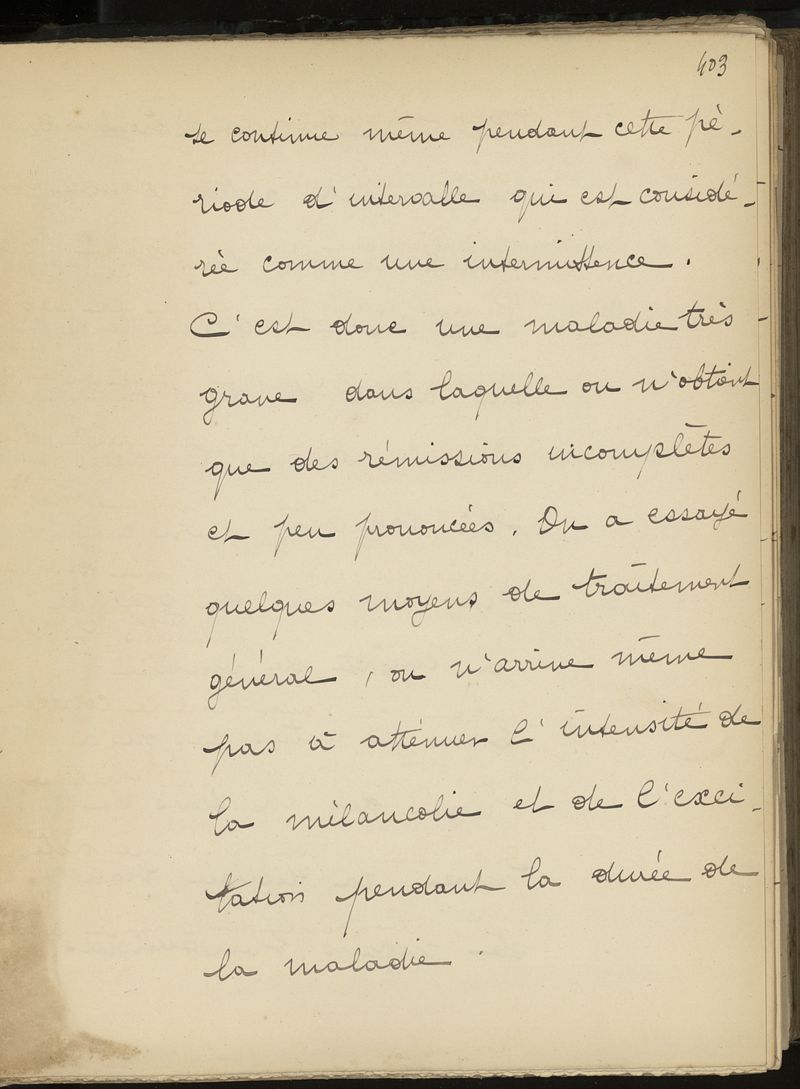 403
se continue même pendant cette pé-
riode d'intervalle qui est considé-
rée comme une intermittence.
C'est donc une maladie très
grave dans laquelle on n'obtient
que des rémissions incomplètes
et peu prononcées. On a essayé
quelques moyens de traitement
général, on n'arrive même
pas à atténuer l'intensité de
la mélancolie et de l'exci-
tation pendant la durée de
la maladie.